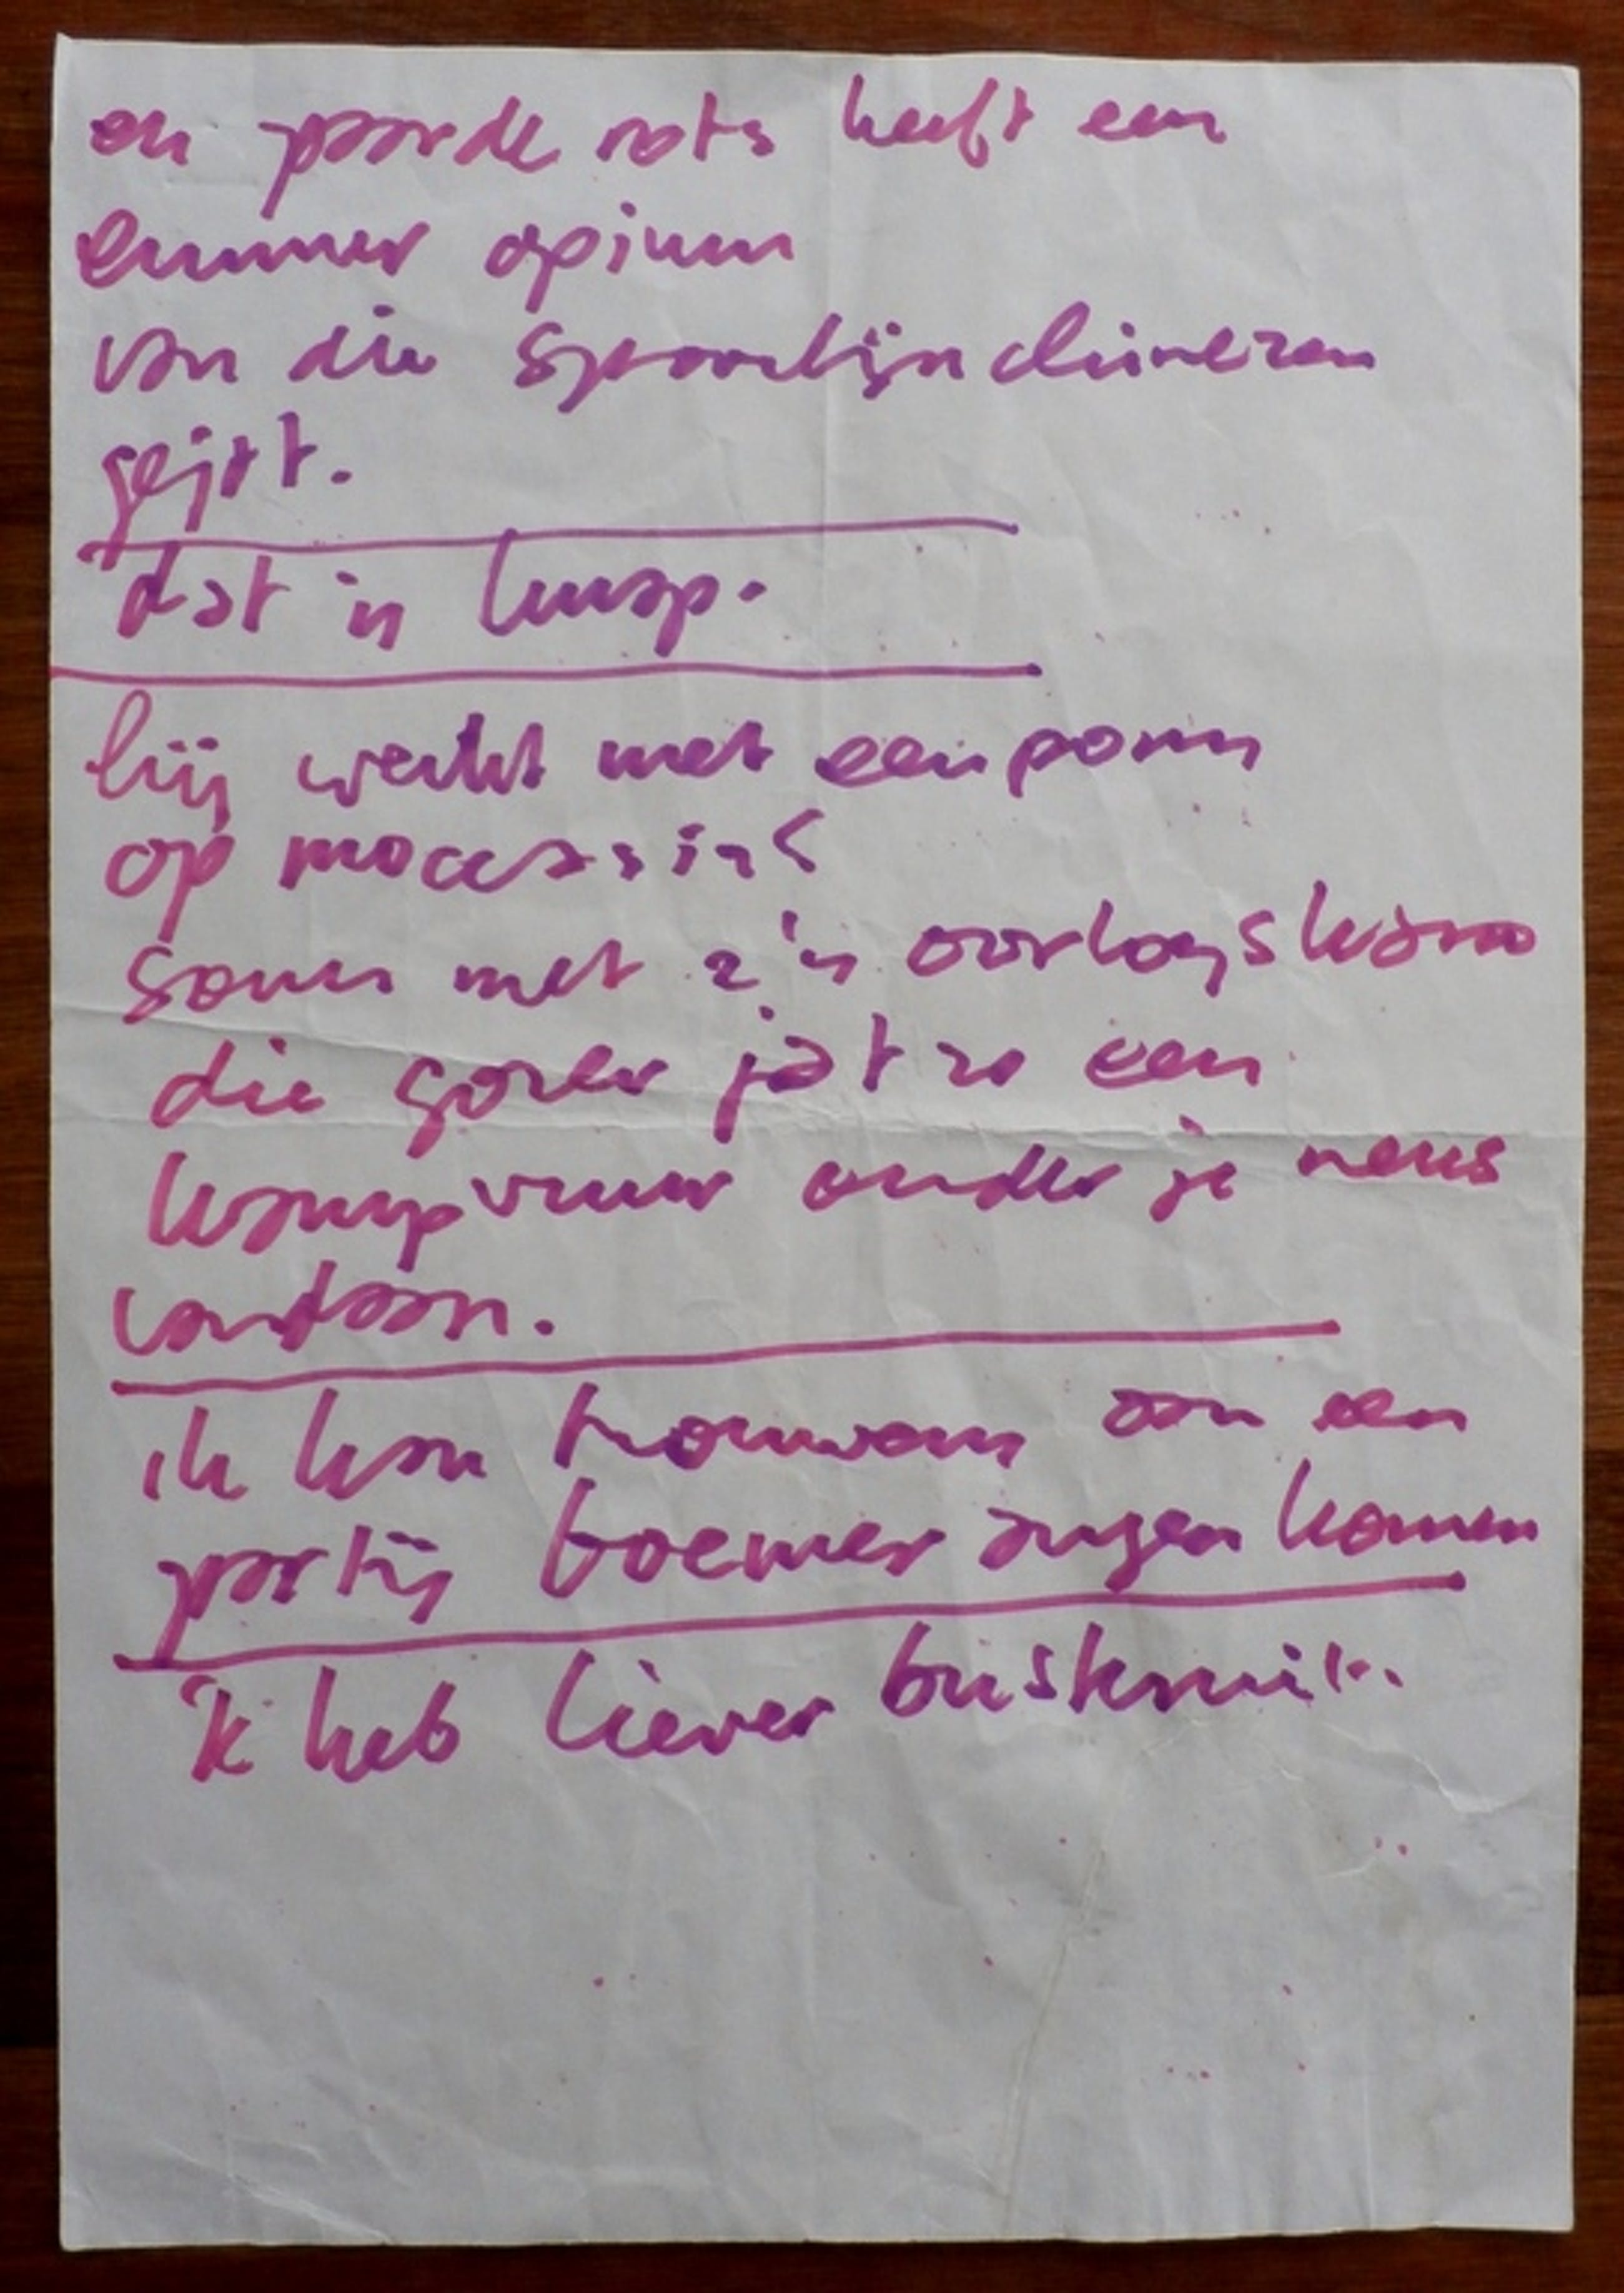 en paarde rots heeft een
emmer opium
van die spoorlijn chinezen
gejat.
dat is knap.
hij werkt met een pony
op moccasins
samen met z'n oorlogskano
die gozer jat zo een
kampvuur onder je neus
vandaan.
ik kan trouwens aan een
partij boemerangen komen
'k heb liever buskruit.